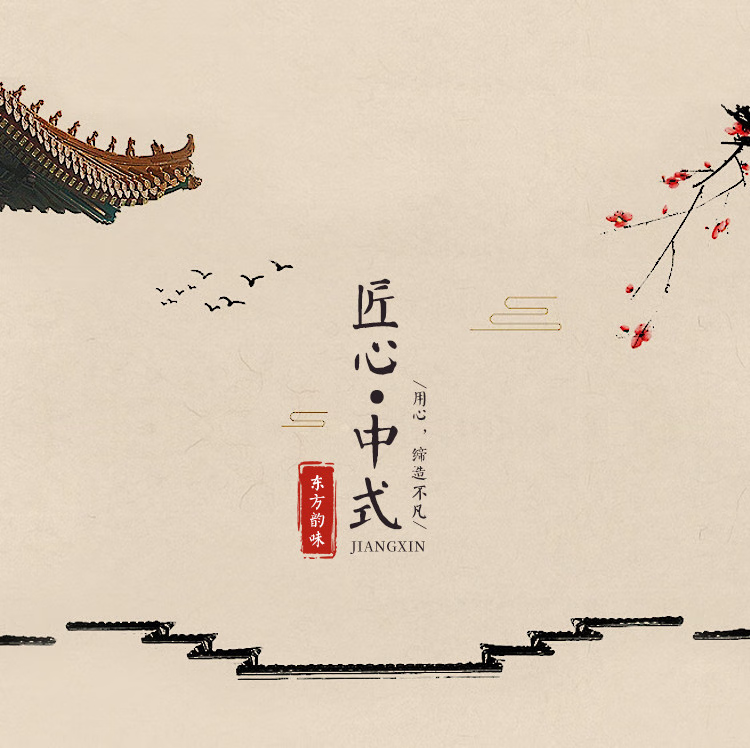 匠心·中式
\用心，缔造不凡/
东方韵味
JIANGXIN